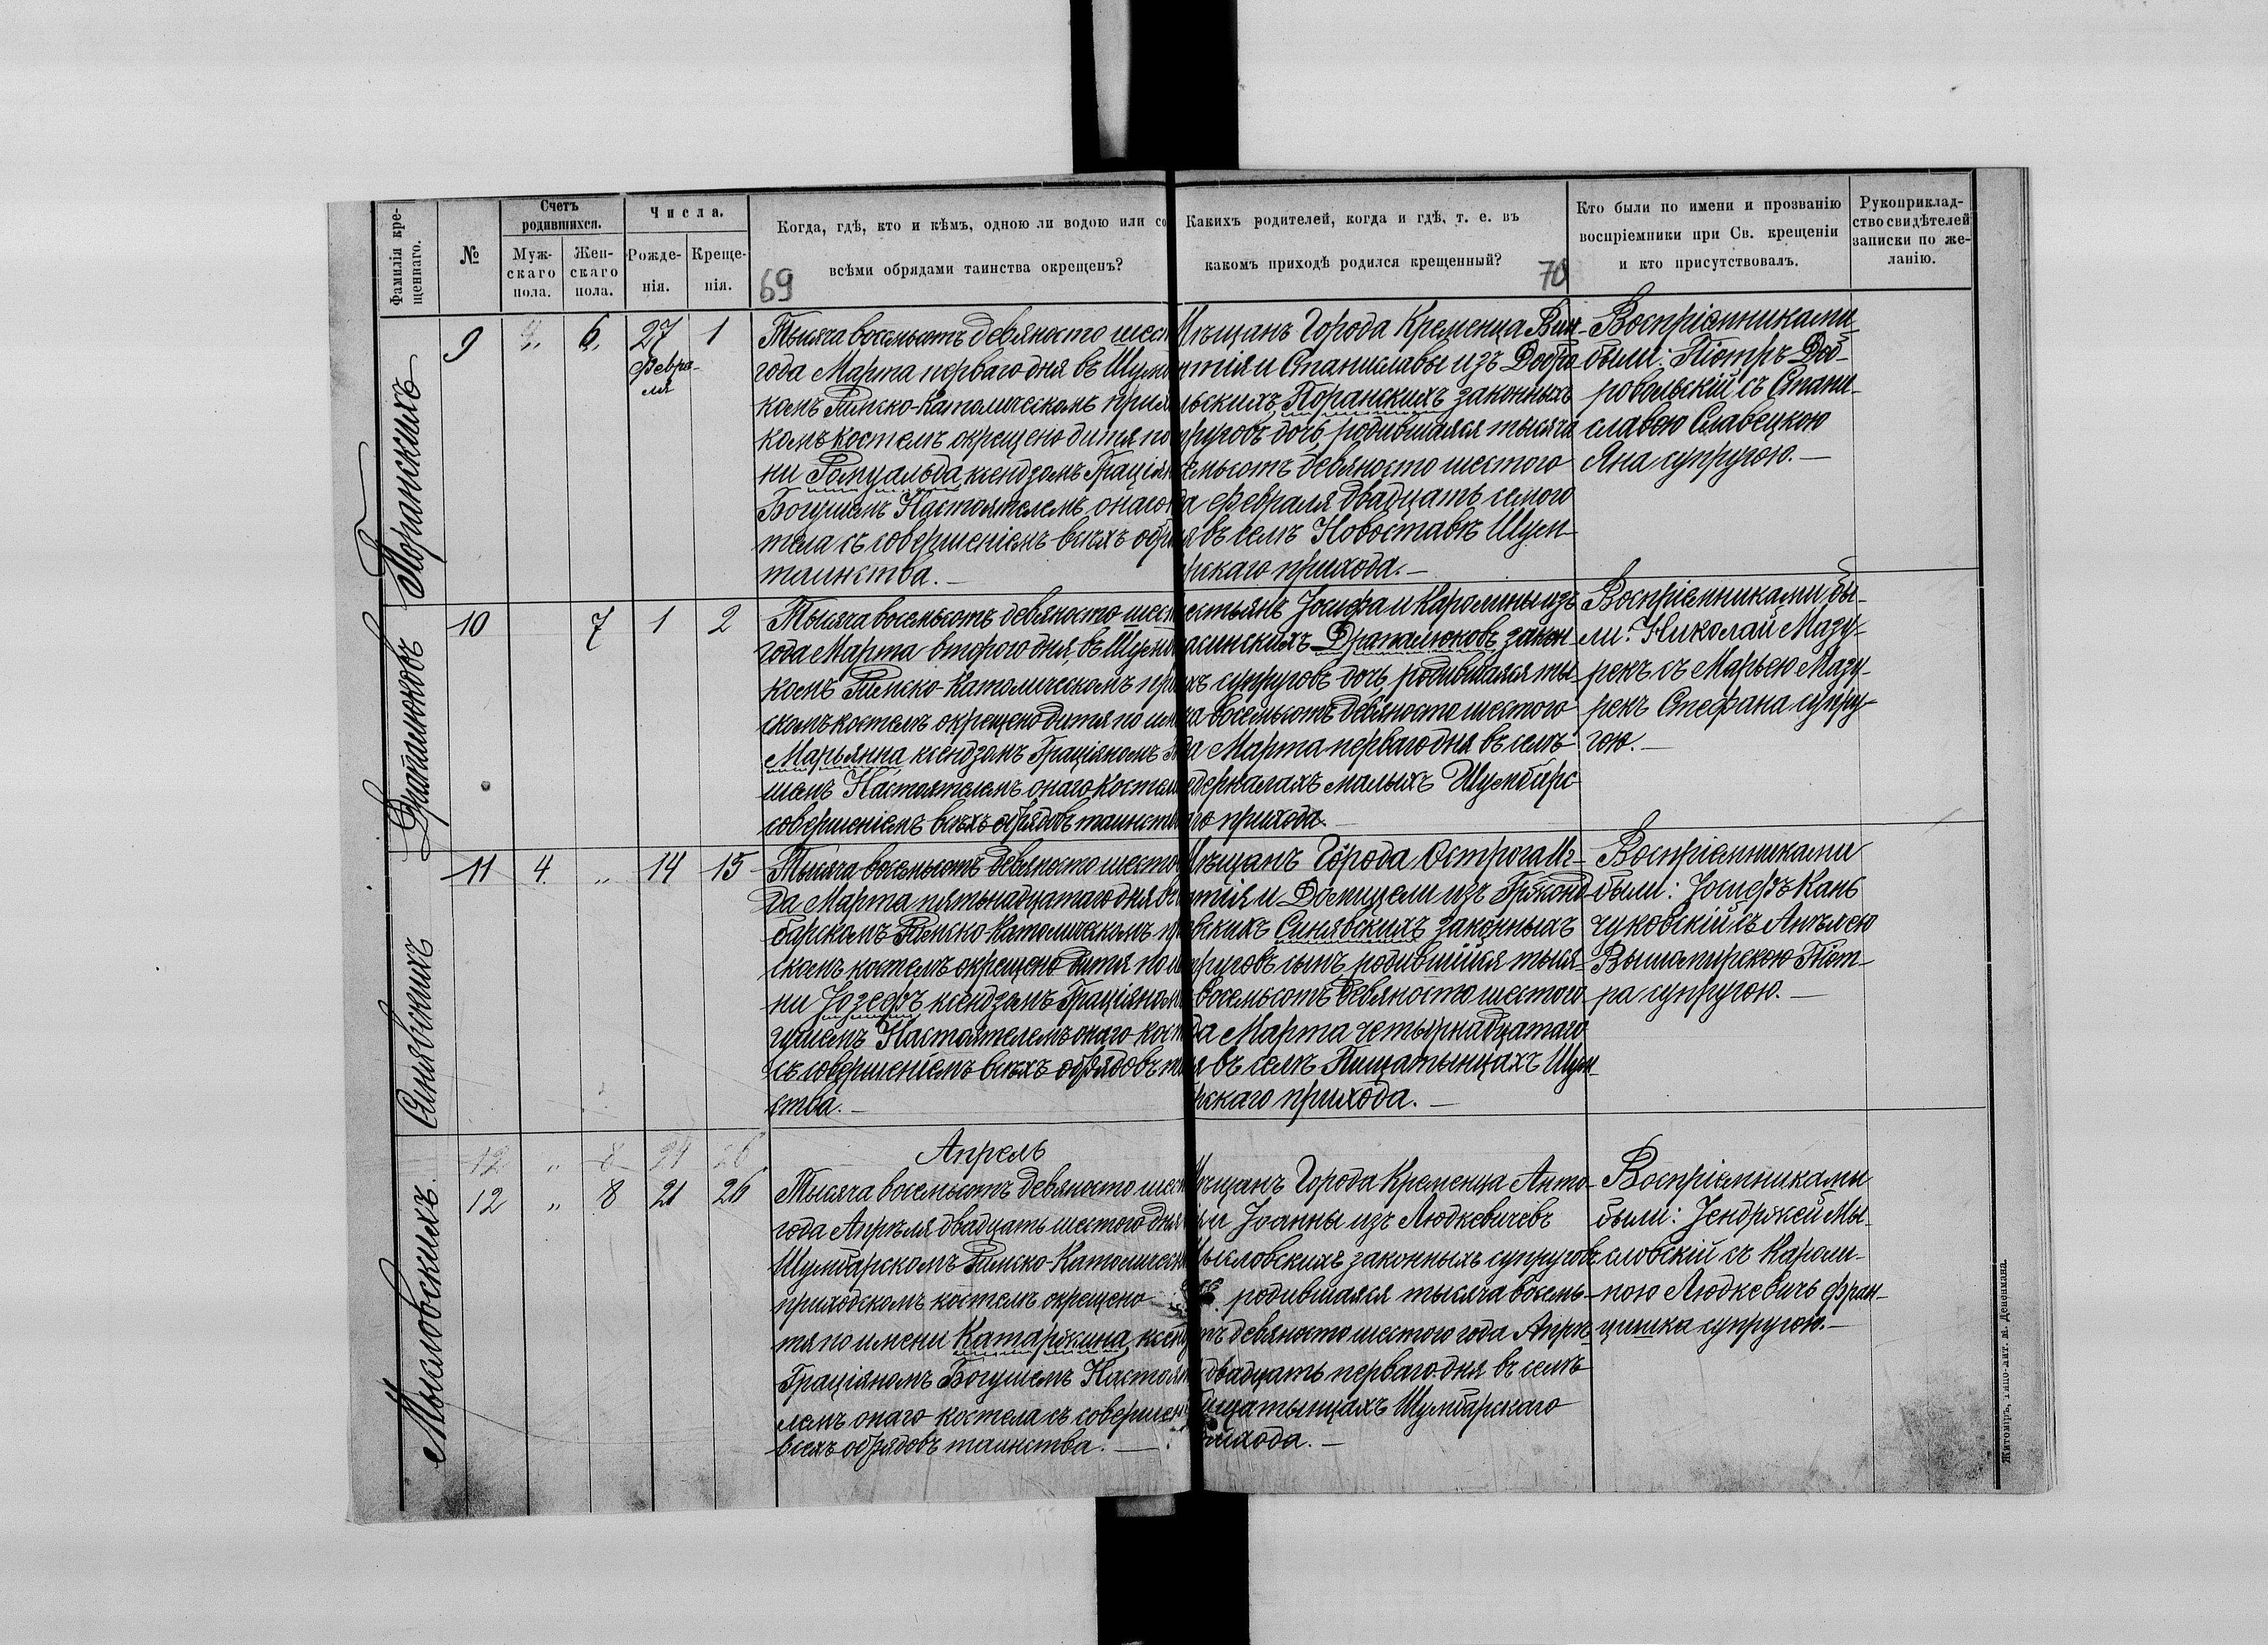 Фамилія кре-
щеннаго.
№
Счетъ
родившихся.
Муж-
скаго
пола.
Жен-
скаго
пола.
Числа.
Рожде-
нія.
Креще-
нія.
Когда, гдѣ, кто и кѣмъ, одною ли водою или со
всѣми обрядами таинства окрещенъ?
69
Каких родителей, когда и гдѣ, т. е. въ
какомъ приходѣ родился крещенный?
70
Кто были по имени и прозванію
воспріемники при Св. крещеніи
и кто присутствовалъ.
Рукоприклад-
ство свидѣтелей
записки по же-
ланію.
Поранскихъ
9
6
27
Февра-
ля
1
Тысяча восемьсотъ девяносто шест
года Марта перваго дня въ Шумб
комъ Римско-Католическомъ прих
комъ костелѣ окрещено дитя по
ни Ромуальда ксендзомъ Граціян
Богушемъ Настоятелемъ онаго
тела съ совершеніемъ всѣхъ обр
таинства.—
Мѣщанъ Города Кременца Вин-
тія и Станиславы изъ Добро-
льскихъ, Поранскихъ законныхъ
пруговъ дочь, родившаяся тысяча
емьсотъ девяносто шестого
да Февраля двадцать семого
я въ селѣ Новоставѣ Шум-
рскаго прихода.—
Воспріемниками
были: Піотръ Доб-
ровольскій съ Стани-
славою Славецкою
Яна супругою.—
Драпалюковъ
10
7
1
2
Тысяча восемьсотъ девяносто шест
года Марта второго дня, въ Шумб
комъ Римско-Католическомъ пр
скомъ костелѣ окрещено дитя по им
Марьянна ксендзомъ Граціяномъ
шемъ Настоятелемъ онаго костел
совершеніемъ всѣхъ обрядовъ таинств
естьянъ Іосифа и Каролины изъ
асинскихъ Драпалюковъ, закон-
хъ супруговъ дочь, родившаяся ты-
ча восемьсотъ девяносто шестого
да Марта перваго дня въ селѣ
дерналахъ малыхъ Шумбарс
го прихода.
Воспріемниками бы-
ли: Николай Мазу-
рекъ съ Марьею Мазу-
рекъ Стефана супру-
гою.—
Синявскихъ
11
4.
„
14
15
Тысяча восемьсотъ девяносто шесто
да Марта пятьнадцатаго дня въ
барскомъ Римско-Католическомъ пр
скомъ костелѣ окрещено дитя по и
ни Іозефъ ксендзомъ Граціяномъ
гушемъ Настоятелемъ онаго кост
съ совершеніемъ всѣхъ обрядовъ т
ства.—
Мѣщанъ Города Острога Иг-
тія и Доницели изъ
вскихъ Синявскихъ законныхъ
пруговъ сынъ, родившійся тыся-
восемьсотъ девяносто шестого
да Марта четырнадцатаго
я въ селѣ Пищатынцахъ Шум-
рскаго прихода.—
Воспріемниками
были: Іосифъ Кань
чуковскій съ Анѣлею
Піот-
ра супругою.—
Мысловскихъ
12
„
8
21
26
12
„
8
21
26
Апрель
Тысяча восемьсотъ девяносто шест
года Апрѣля двадцать шестого дня
Шумбарскомъ Римско-Католическ
приходскомъ костелѣ окрещено
тя по имени Катаржина, ксенд
Граціяномъ Богушемъ Настоят
лемъ онаго костела съ совершен
всѣхъ обрядовъ таинства.—
Мѣщанъ Города Кременца Анто-
и Іоанны изъ Людкевичевъ
Мысловскихъ законныхъ супруговъ
родившаяся тысяча восемь-
тъ девяносто шестого года Апрѣ
двадцать перваго дня въ селѣ
Пищатынцахъ Шумбарскаго
прихода.—
Воспріемниками
были: Јендржей Мы-
словскій съ Кароли-
ною Людкевичъ Фран-
цишка супругою.—
Житомиръ, типо-лит. М. Дененмана.